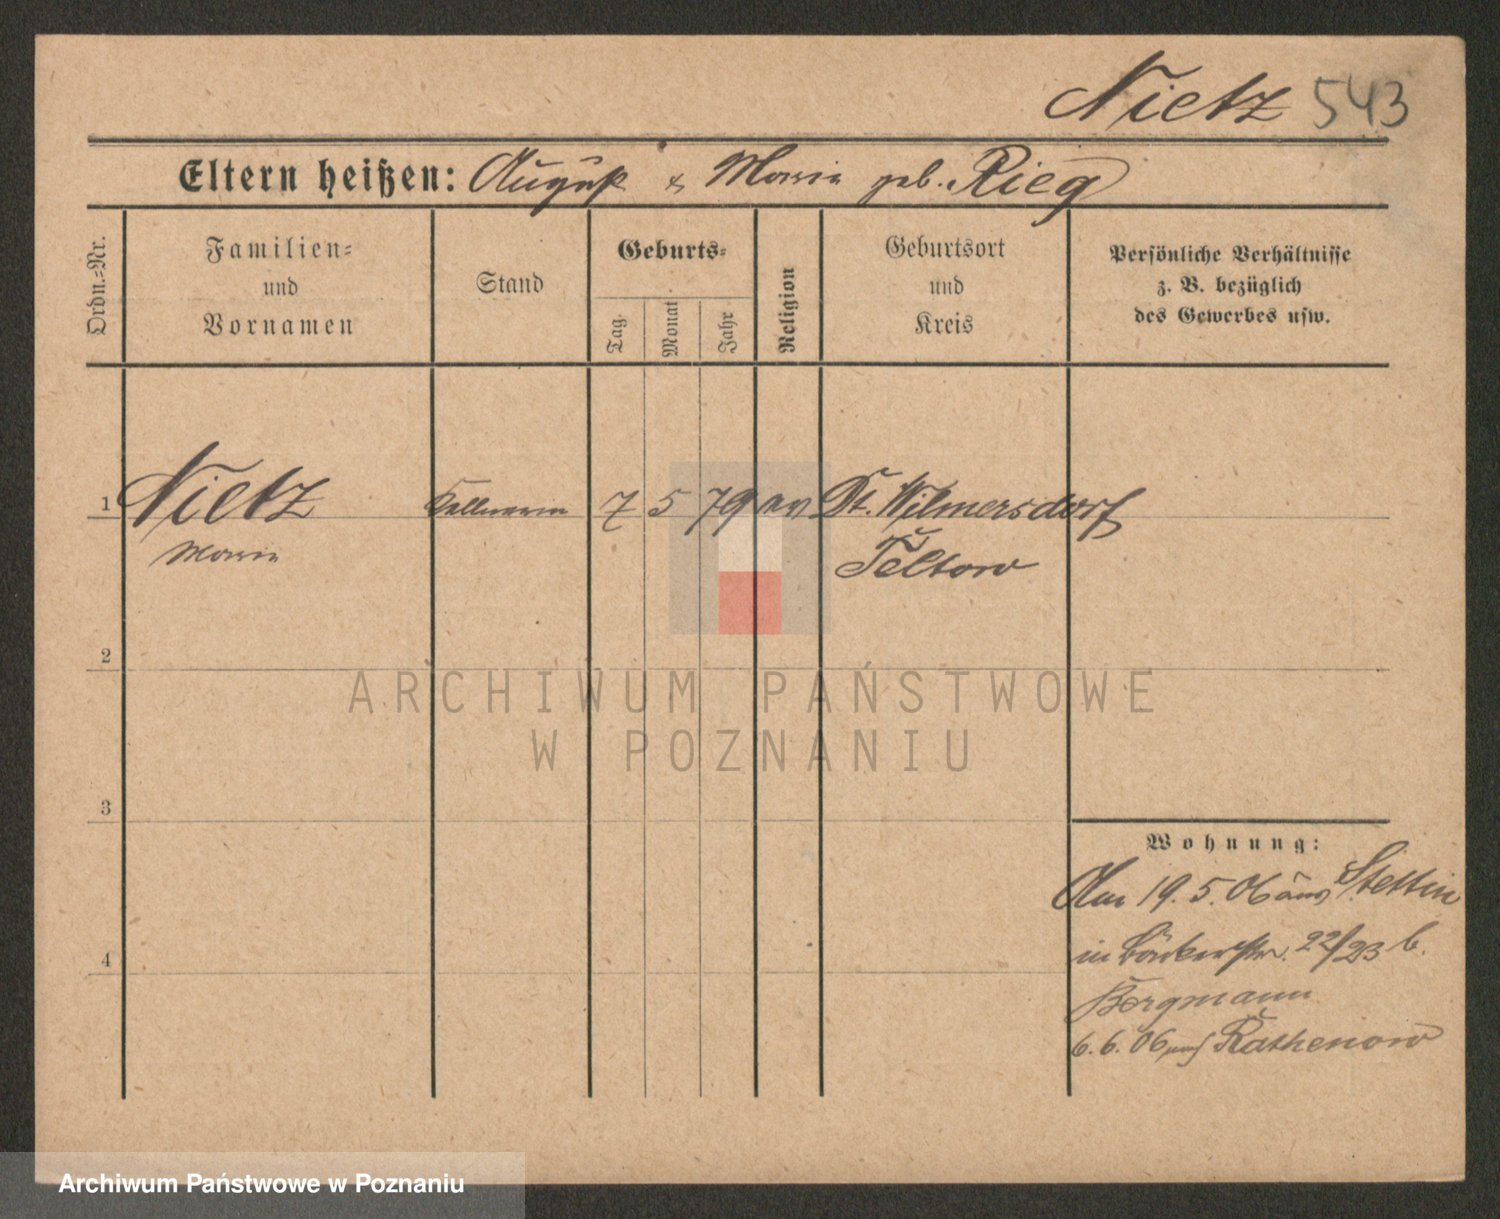 Nietz 543
Eltern heißen: August & Marie geb. Rieg
Ordn.-Nr.
Familien-
und
Vornamen
Stand
Geburts-
Tag.
Monat
Jahr
Religion
Geburtsort
und
Kreis
Persönliche Verhältnisse
z. B. bezüglich
des Gewerbes usw.
1 Nietz Kellnerin 7 5 79 ev Dt. Wilmersdorf
Marie Teltow
2
3
4
Wohnung:
Am 19. 5. 06 aus Stettin
in Bäckerstr. 22/23 b.
Bergmann
6. 6. 06 nach Rathenow
ARCHIWUM PAŃSTWOWE
W POZNANIU
Archiwum Państwowe w Poznaniu